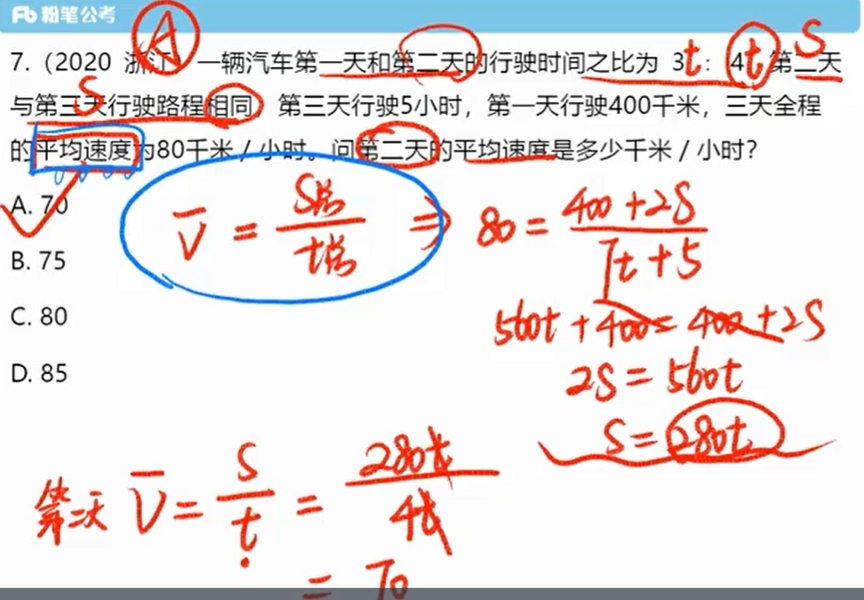 Fb 粉笔公考
A
7.（2020 浙江）一辆汽车第一天和第二天的行驶时间之比为 3t：4t 第二天 S
与第三天行驶路程相同，第三天行驶5小时，第一天行驶400千米，三天全程
S
的平均速度为80千米/小时。问第二天的平均速度是多少千米/小时？
A. 70
V = S总/t总 ⇒ 80 = 400+2S/7t+5
B. 75
C. 80
560t + 400 = 400 + 2S
D. 85
2S = 560t
S = 280t
第二天 V = S/t = 280t/4t
= 70